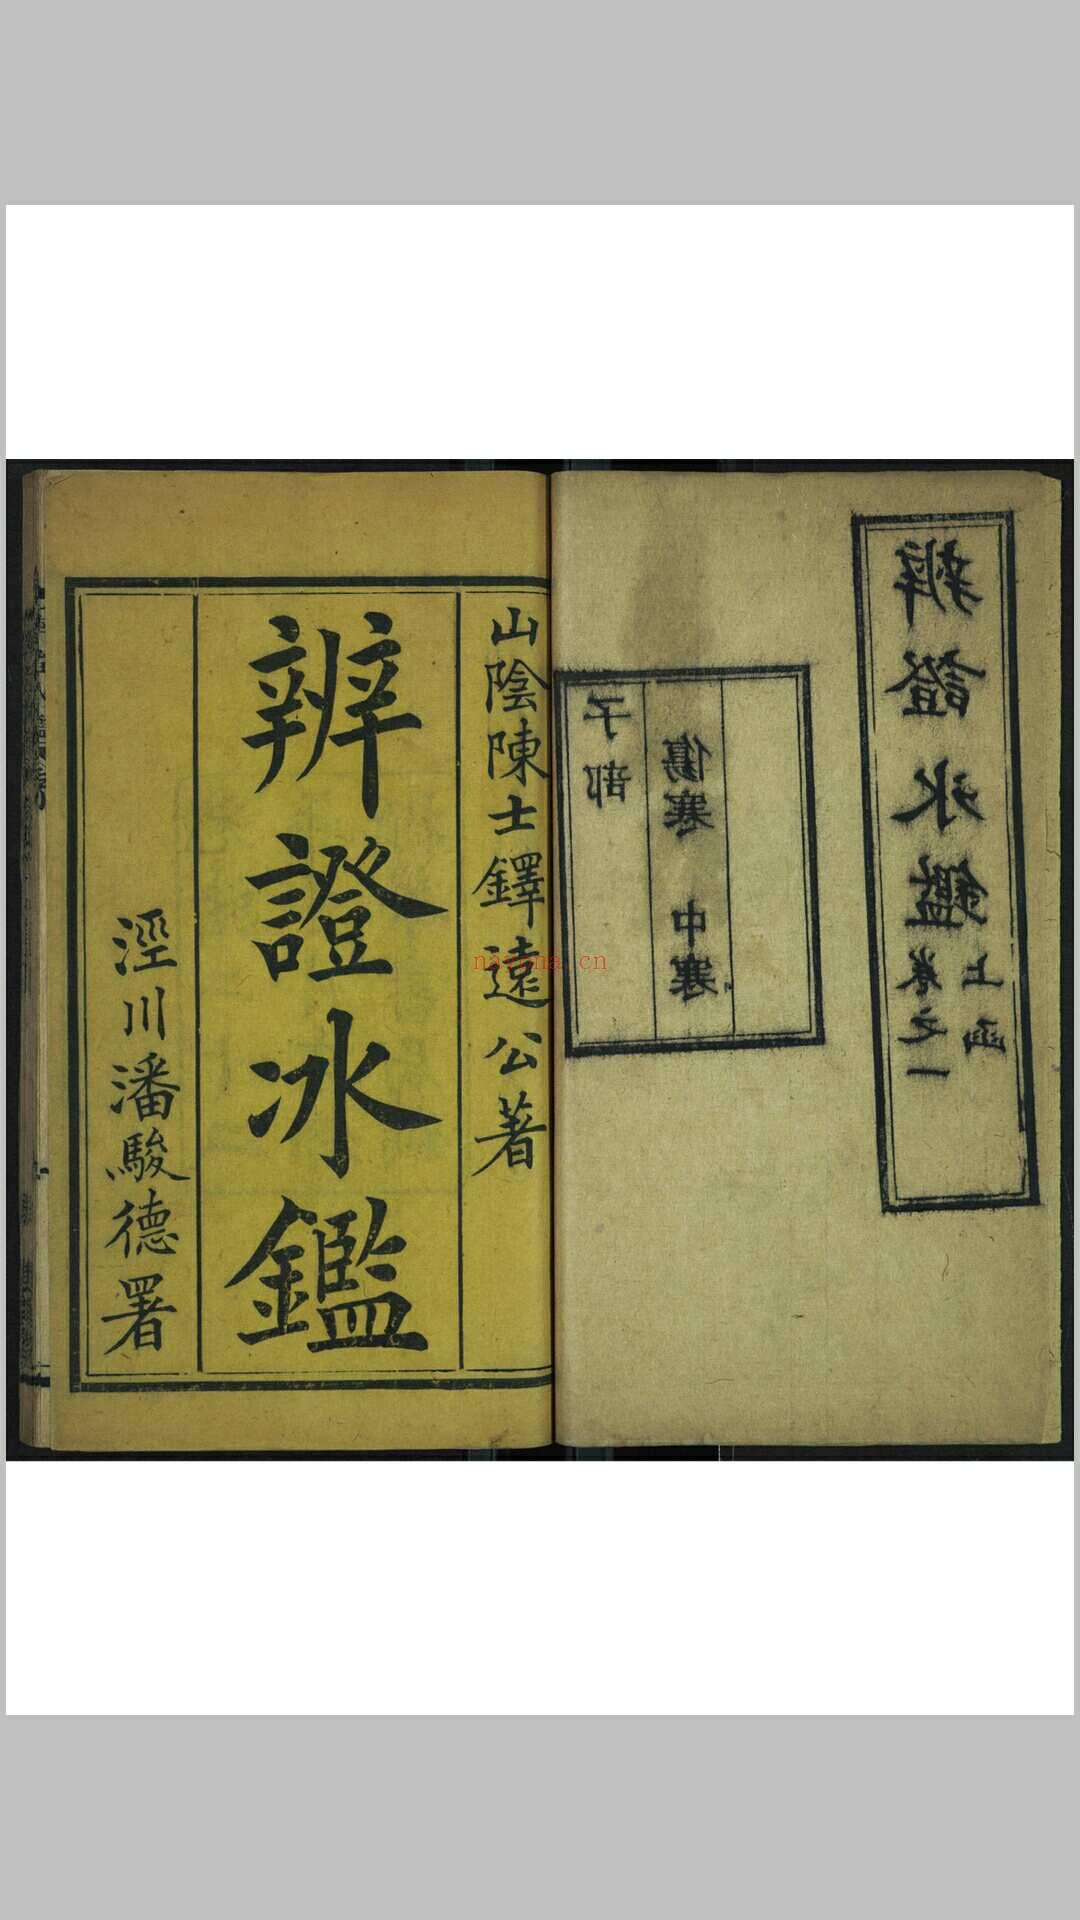 辨證氷鑑
上函
卷之一
傷寒　中寒
子部
山陰陳士鐸遠公著
辨證冰鑑
涇川潘駿德署
nayona.cn